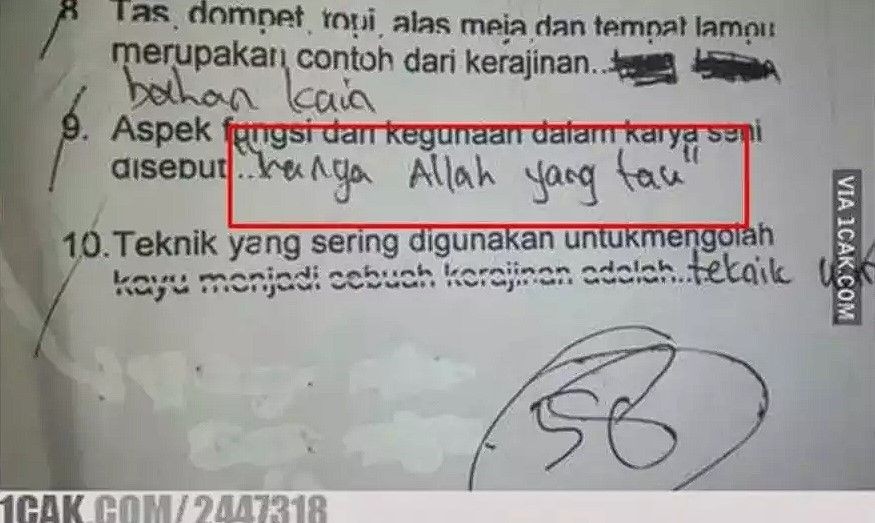 8 Tas, dompet, topi, alas meja dan tempat lampu
merupakan contoh dari kerajinan..
bahan kain
9. Aspek fungsi dan kegunaan dalam karya seni
disebut.. "hanya Allah yang tau"
10. Teknik yang sering digunakan untukmengolah
kayu menjadi sebuah kerajinan adalah.. teknik
58
VIA 1CAK.COM
1CAK.COM/2447318